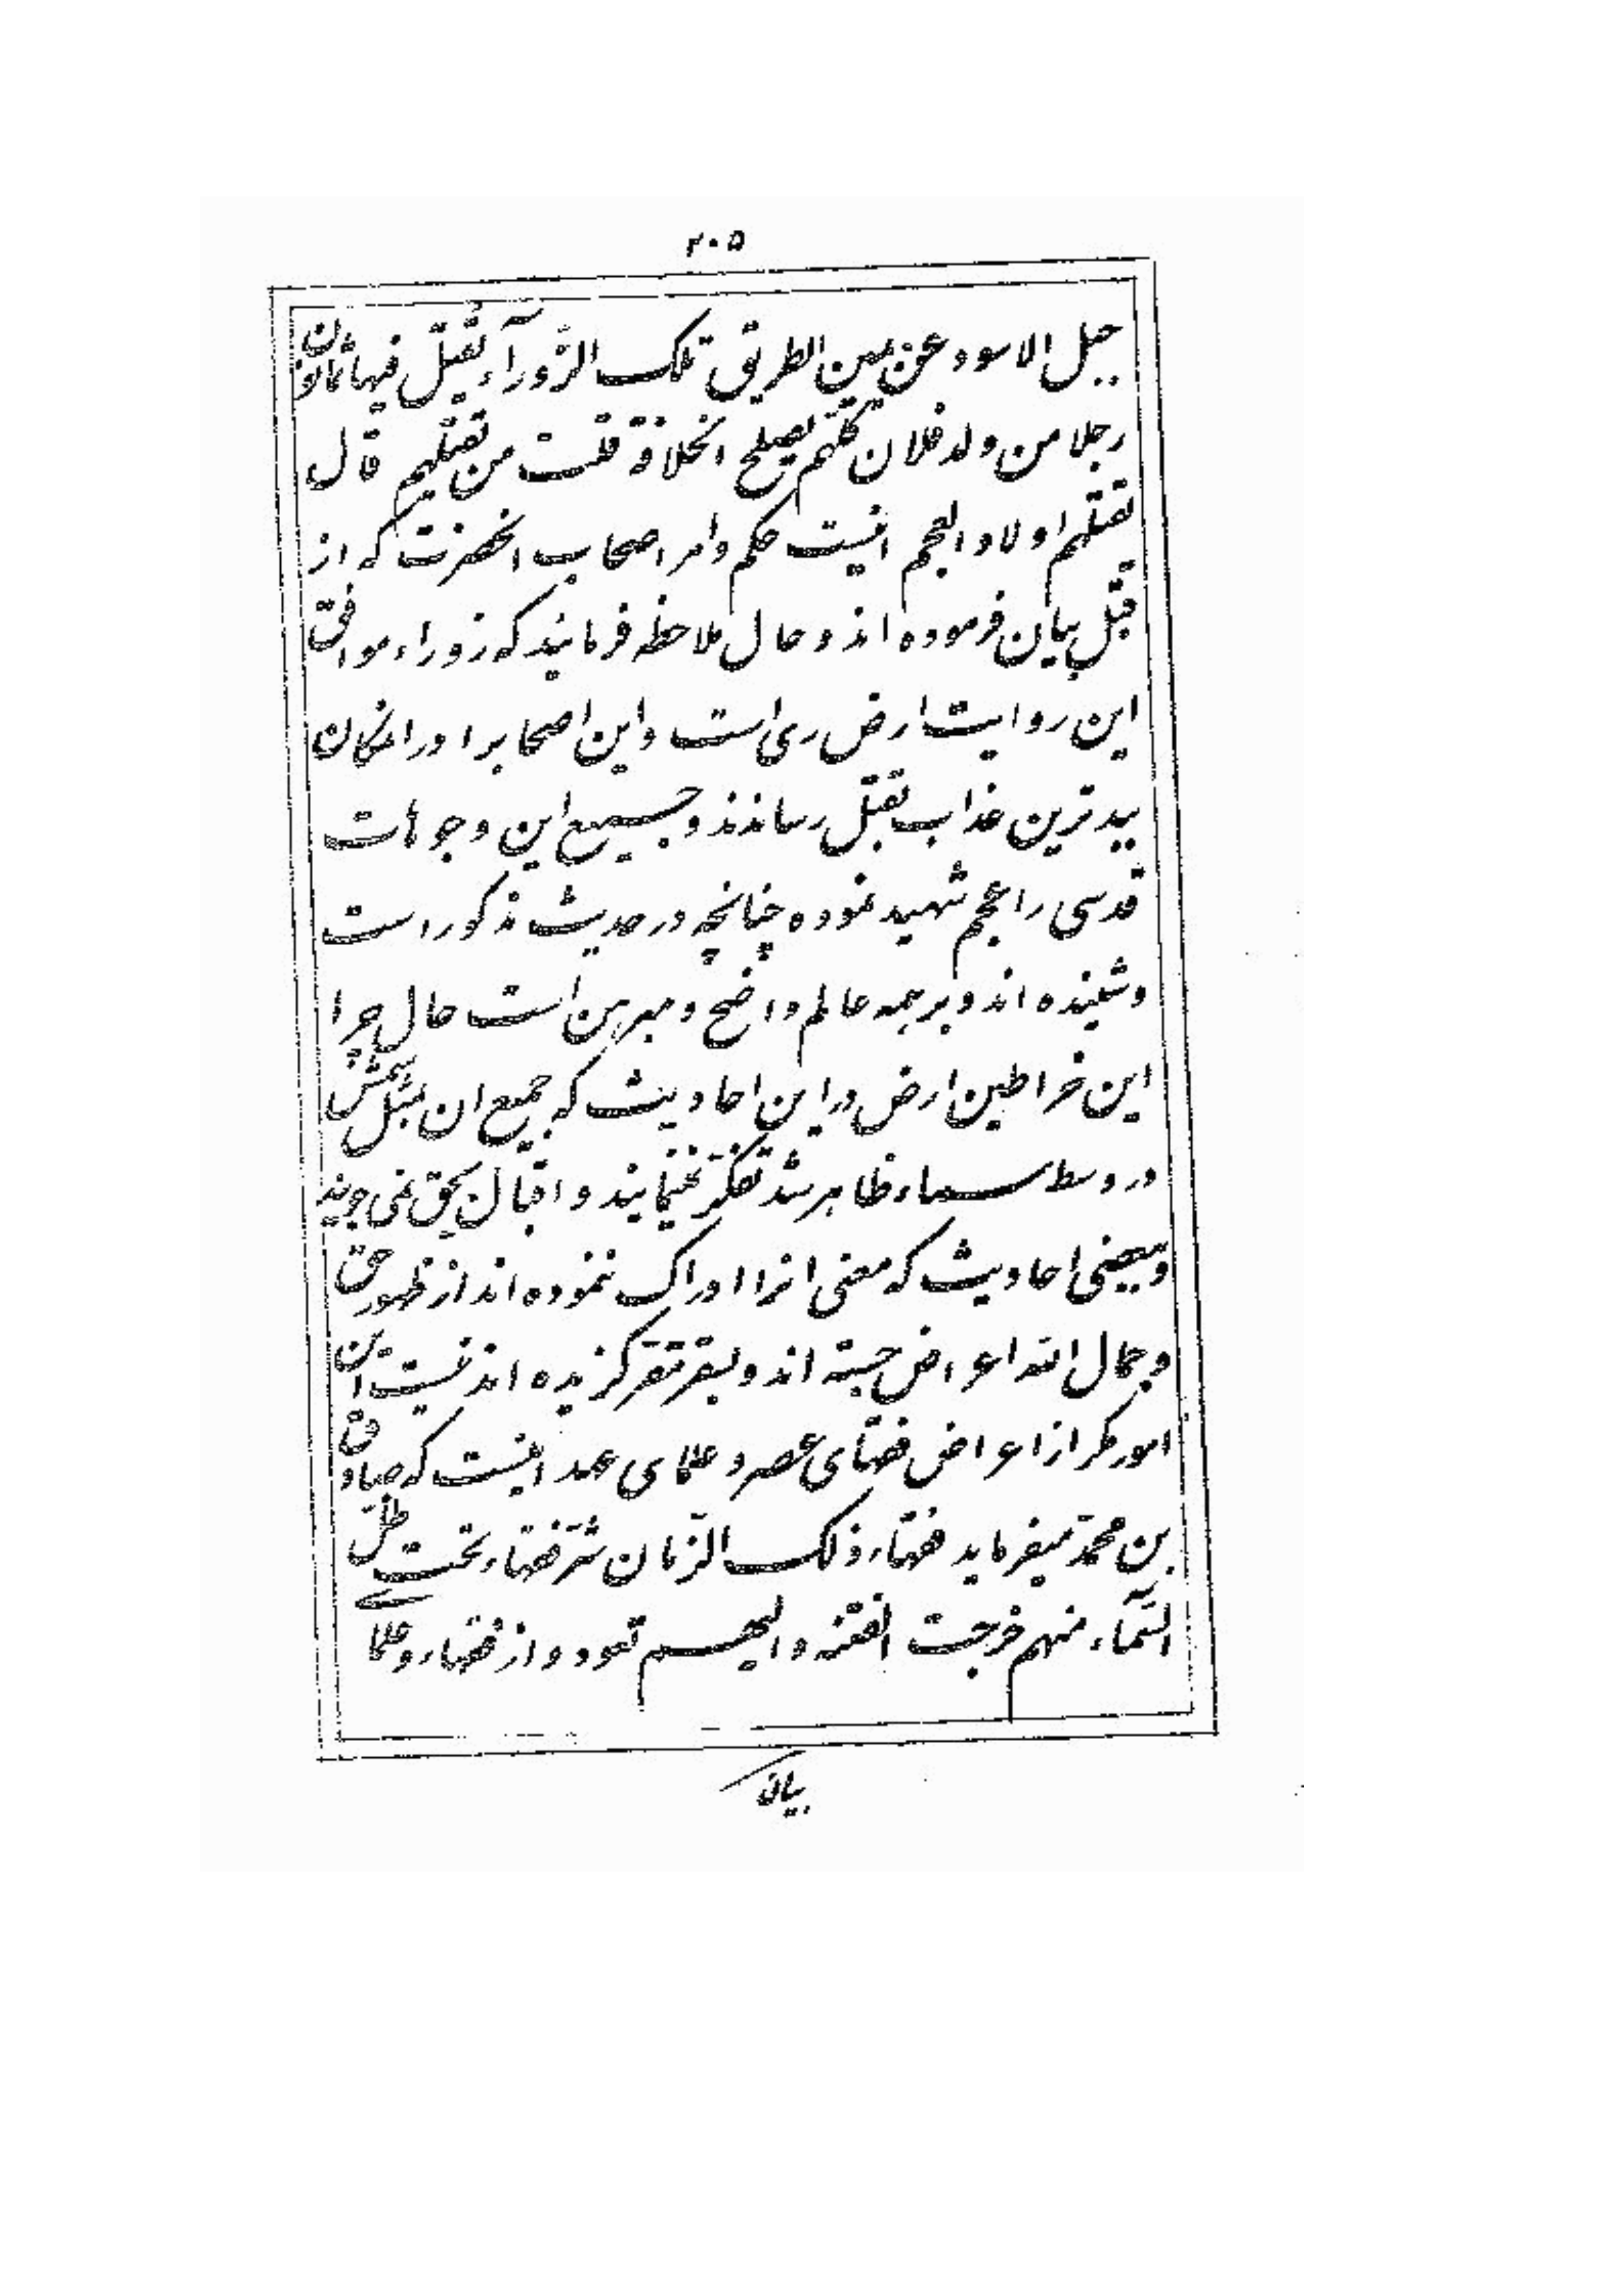 ۲۰۵
جبل الاسود عن یمین الطریق تلک الزّورآء یقتل فیها ثمانون
رجلا من ولد فلان کلّهم یصلح الخلافة قلت من یقتلهم قال
یقتلهم اولاد العجم اینست حکم و امر اصحاب انحضرت که از
قبل بیان فرموده‌اند و حال ملاحظه فرمایند که زوراء موافق
این روایت ارض ری است و این اصحابرا در انمکان
ببدترین عذاب بقتل رساندند و جمیع این وجودات
قدسی را عجم شهید نموده چنانچه در حدیث مذکور است
و شنیده‌اند و بر همه عالم واضح و مبرهن است حال چرا
این خراطین ارض در این احادیث که جمیع ان بمثل شمس
در وسط سماء ظاهر شد تفکّر نمینمایند و اقبال بحق نمی جویند
و ببعضی احادیث که معنی انرا ادراک ننموده‌اند از ظهور حق
و جمال الله اعراض جسته‌اند و بسقر مقر گزیده‌اند نیست ان
امور مگر از اعراض فقهای عصر و علمای عهد اینست که صادق
بن محمّد میفرماید فقهاء ذلک الزّمان شرّ فقهاء تحت ظلّ
السّمآء منهم خرجت الفتنه و الیهم تعود و از فقهاء و علمای
بیان